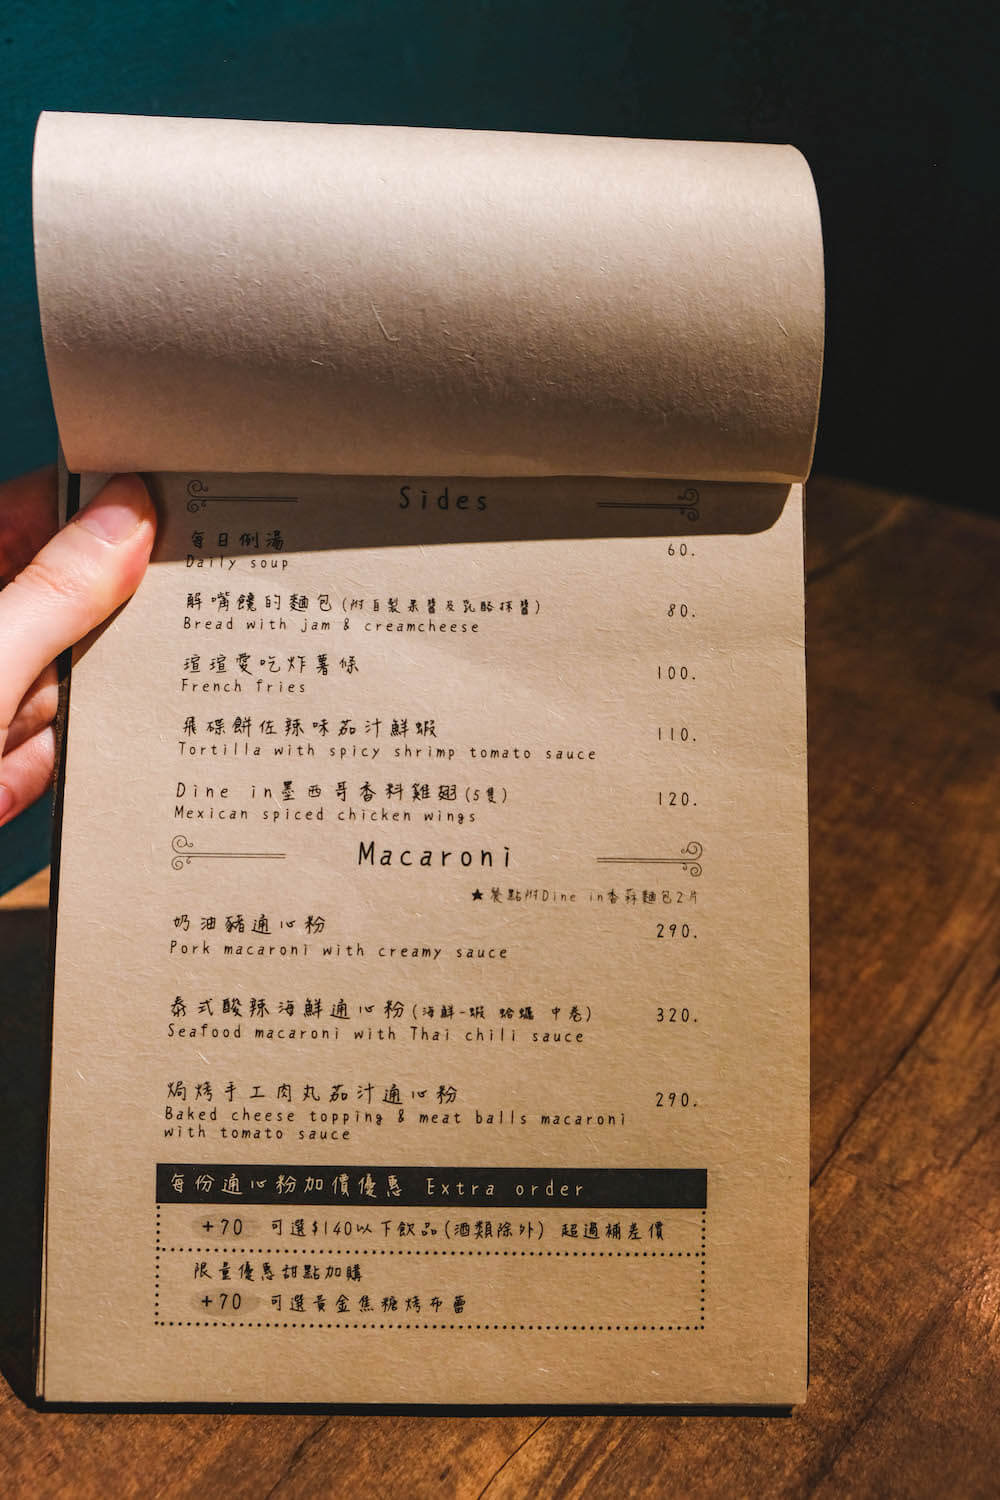 Sides
每日例湯
60.
Daily soup
解嘴饞的麵包(附自製果醬及乳酪抹醬)
80.
Bread with jam & creamcheese
瑄瑄愛吃炸薯條
100.
French fries
飛碟餅佐辣味茄汁鮮蝦
110.
Tortilla with spicy shrimp tomato sauce
Dine in墨西哥香料雞翅(5隻)
120.
Mexican spiced chicken wings
Macaroni
★餐點附Dine in香蒜麵包2片
奶油豬通心粉
290.
Pork macaroni with creamy sauce
泰式酸辣海鮮通心粉(海鮮-蝦 蛤蠣 中卷)
320.
Seafood macaroni with Thai chili sauce
焗烤手工肉丸茄汁通心粉
290.
Baked cheese topping & meat balls macaroni
with tomato sauce
每份通心粉加價優惠 Extra order
+70 可選$140以下飲品(酒類除外) 超過補差價
限量優惠甜點加購
+70 可選黃金焦糖烤布蕾